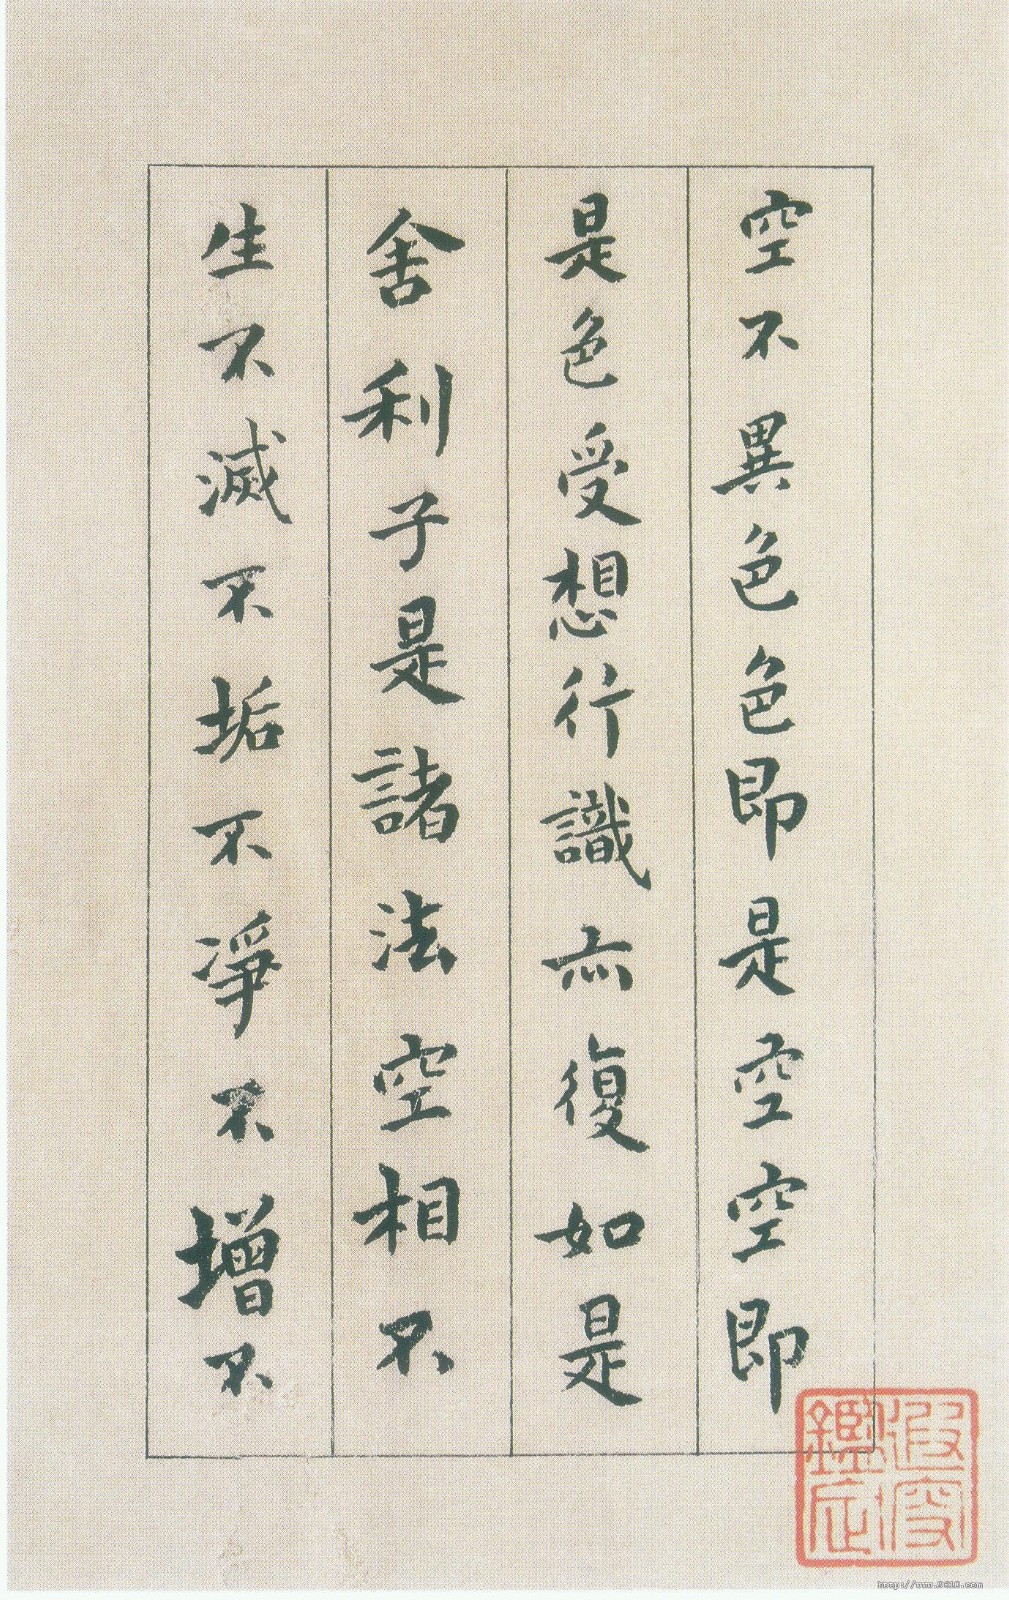 空不異色色即是空空即
是色受想行識亦復如是
舍利子是諸法空相不
生不滅不垢不淨不增不